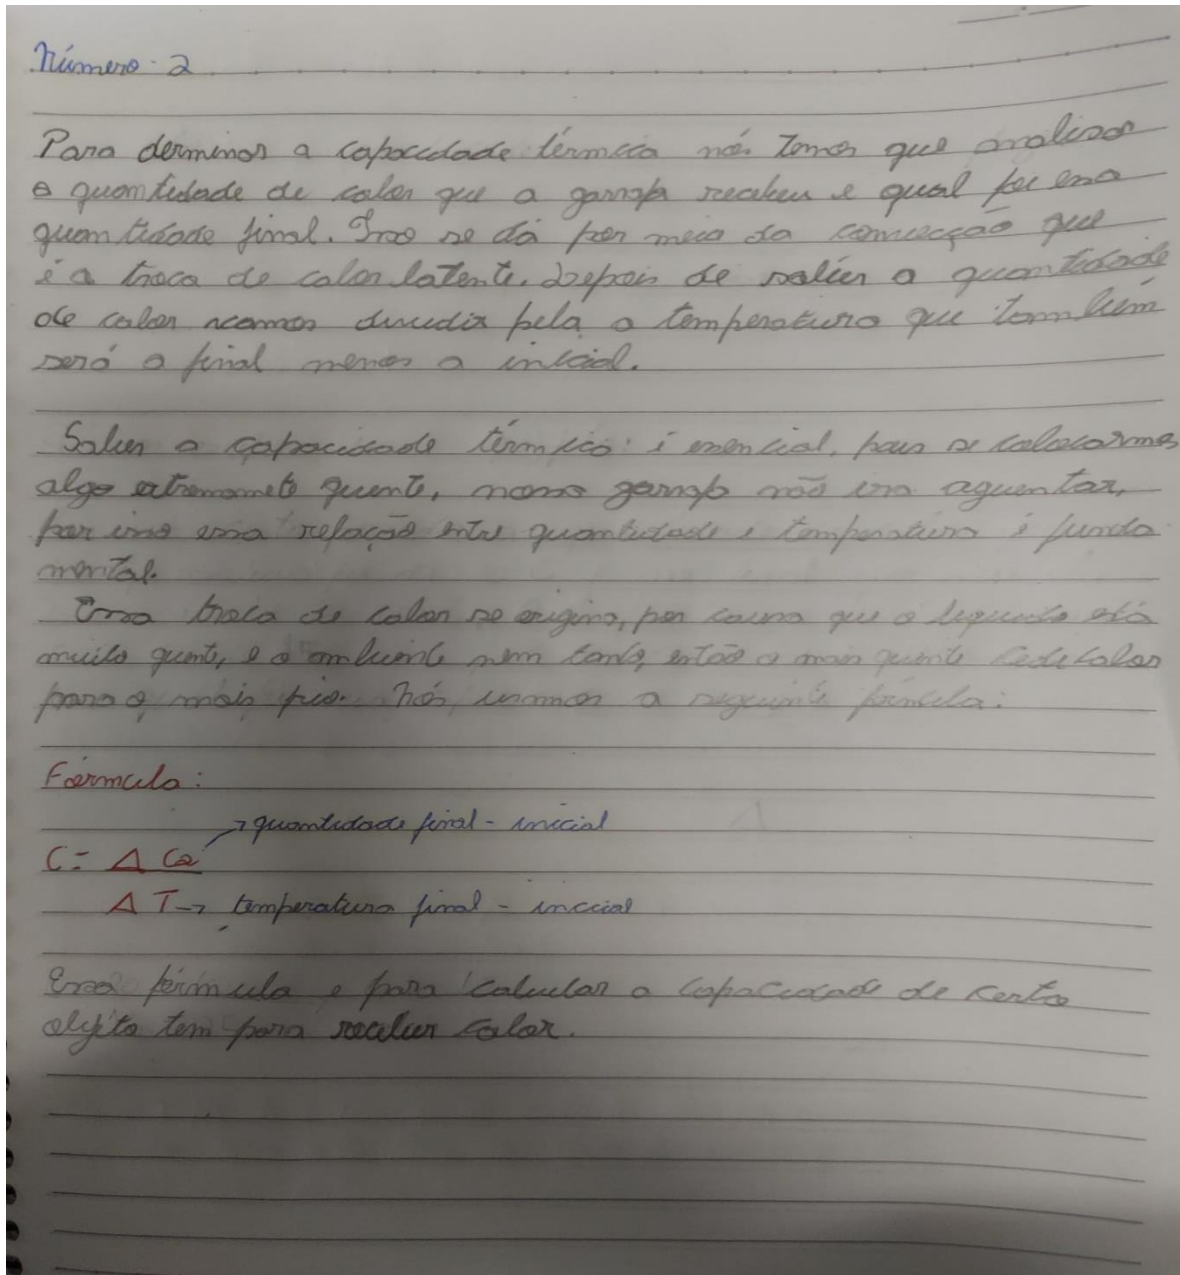 Número - 2
Para derminos a capacidade térmica nós Temos que analisar
a quantidade de calor que a garrafa recebeu e qual foi essa
quantidade final. Isso se dá por meio da convecção que
é a troca de calor latente. Depois de saber a quantidade
de calor vamos dividir pela a temperatura que também
será a final menos a inicial.
Saber a capacidade térmica é essencial, pois se colocarmos
algo extremamete quente, nossa garrafa não ira aguentar,
por isso essa relação entre quantidade e temperatura é funda
mental.
Essa troca de calor se origina, por causa que o liquido está
muito quente, e o ambiente nem tanto, então o mais quente cede calor
para o mais frio. Nós usamos a seguinte fórmula:
Fórmula:
quantidade final - inicial
C = Δ Ca
Δ T → temperatura final - inicial
Essa fórmula e para calcular a capacidade de certo
objeto tem para receber calor.